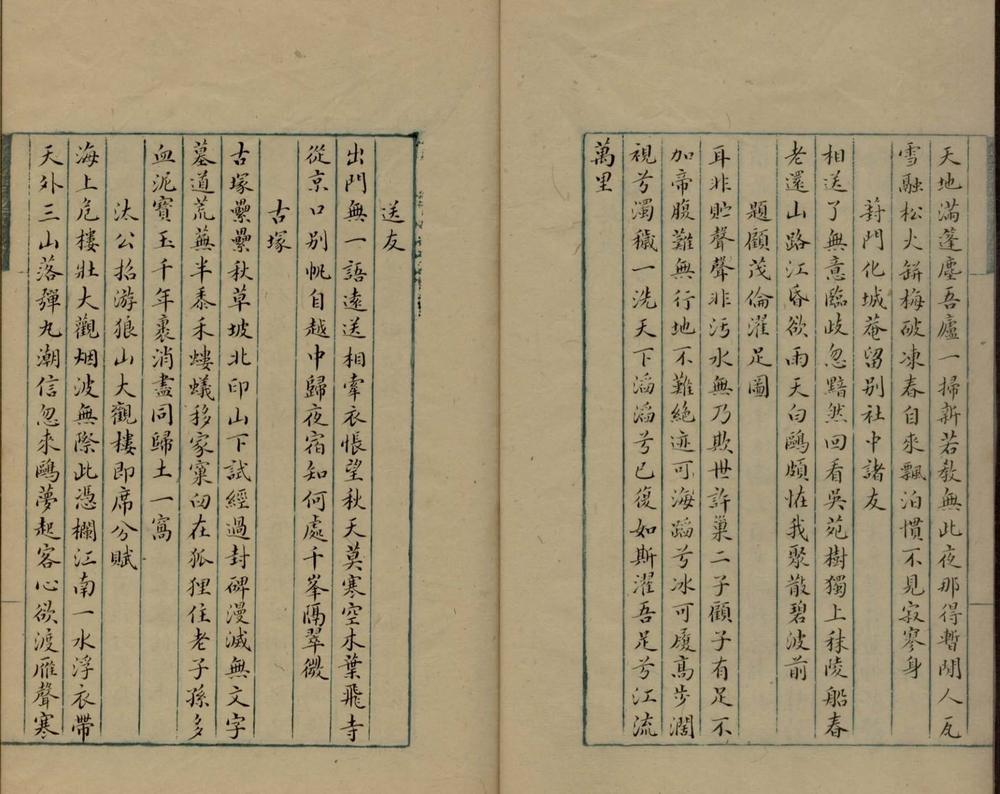 天地滿蓬塵吾廬一掃新若教無此夜那得暫閒人瓦
雪融松火缾梅破凍春自來飄泊慣不見寂寒身
葑門化城菴留別社中諸友
相送了無意臨歧忽黯然回看吳苑樹獨上秣陵船春
老還山路江昏欲雨天白鷗頗恠我聚散碧波前
題顧茂倫濯足圖
耳非貯聲聲非污水無乃欺世許巢二子顧子有足不
加帝腹難無行地不難絶迹可海蹈兮冰可履高步濶
視兮濁穢一洗天下滔滔兮已復如斯濯吾足兮江流
萬里
送友
出門無一語遠送相牽衣悵望秋天莫寒空木葉飛寺
從京口別帆自越中歸夜宿知何處千峯隔翠微
古塚
古塚纍纍秋草坡北印山下試經過封碑漫滅無文字
墓道荒蕪半黍禾螻蟻移家窠臼在狐狸住老子孫多
血泥寶玉千年裹消盡同歸土一窩
汰公招游狼山大觀樓即席分賦
海上危樓壯大觀烟波無際此憑欄江南一水浮衣帶
天外三山落彈丸潮信忽來鷗夢起客心欲渡雁聲寒